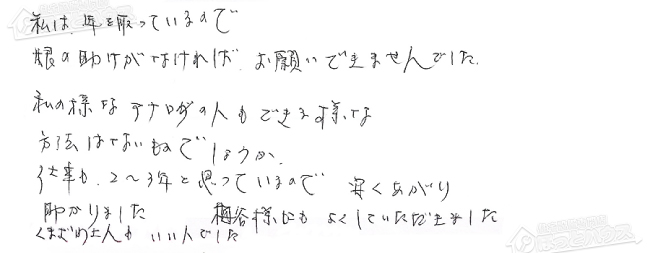 私は、年を取っているので
娘の助けがなければ、お願いできませんでした。
私の様なアナログの人もできる様な
方法はないものでしょうか。
も、2～3年と思っているので 安くあがり
助かりました 様にもよくしていただきました
人もいい人でした